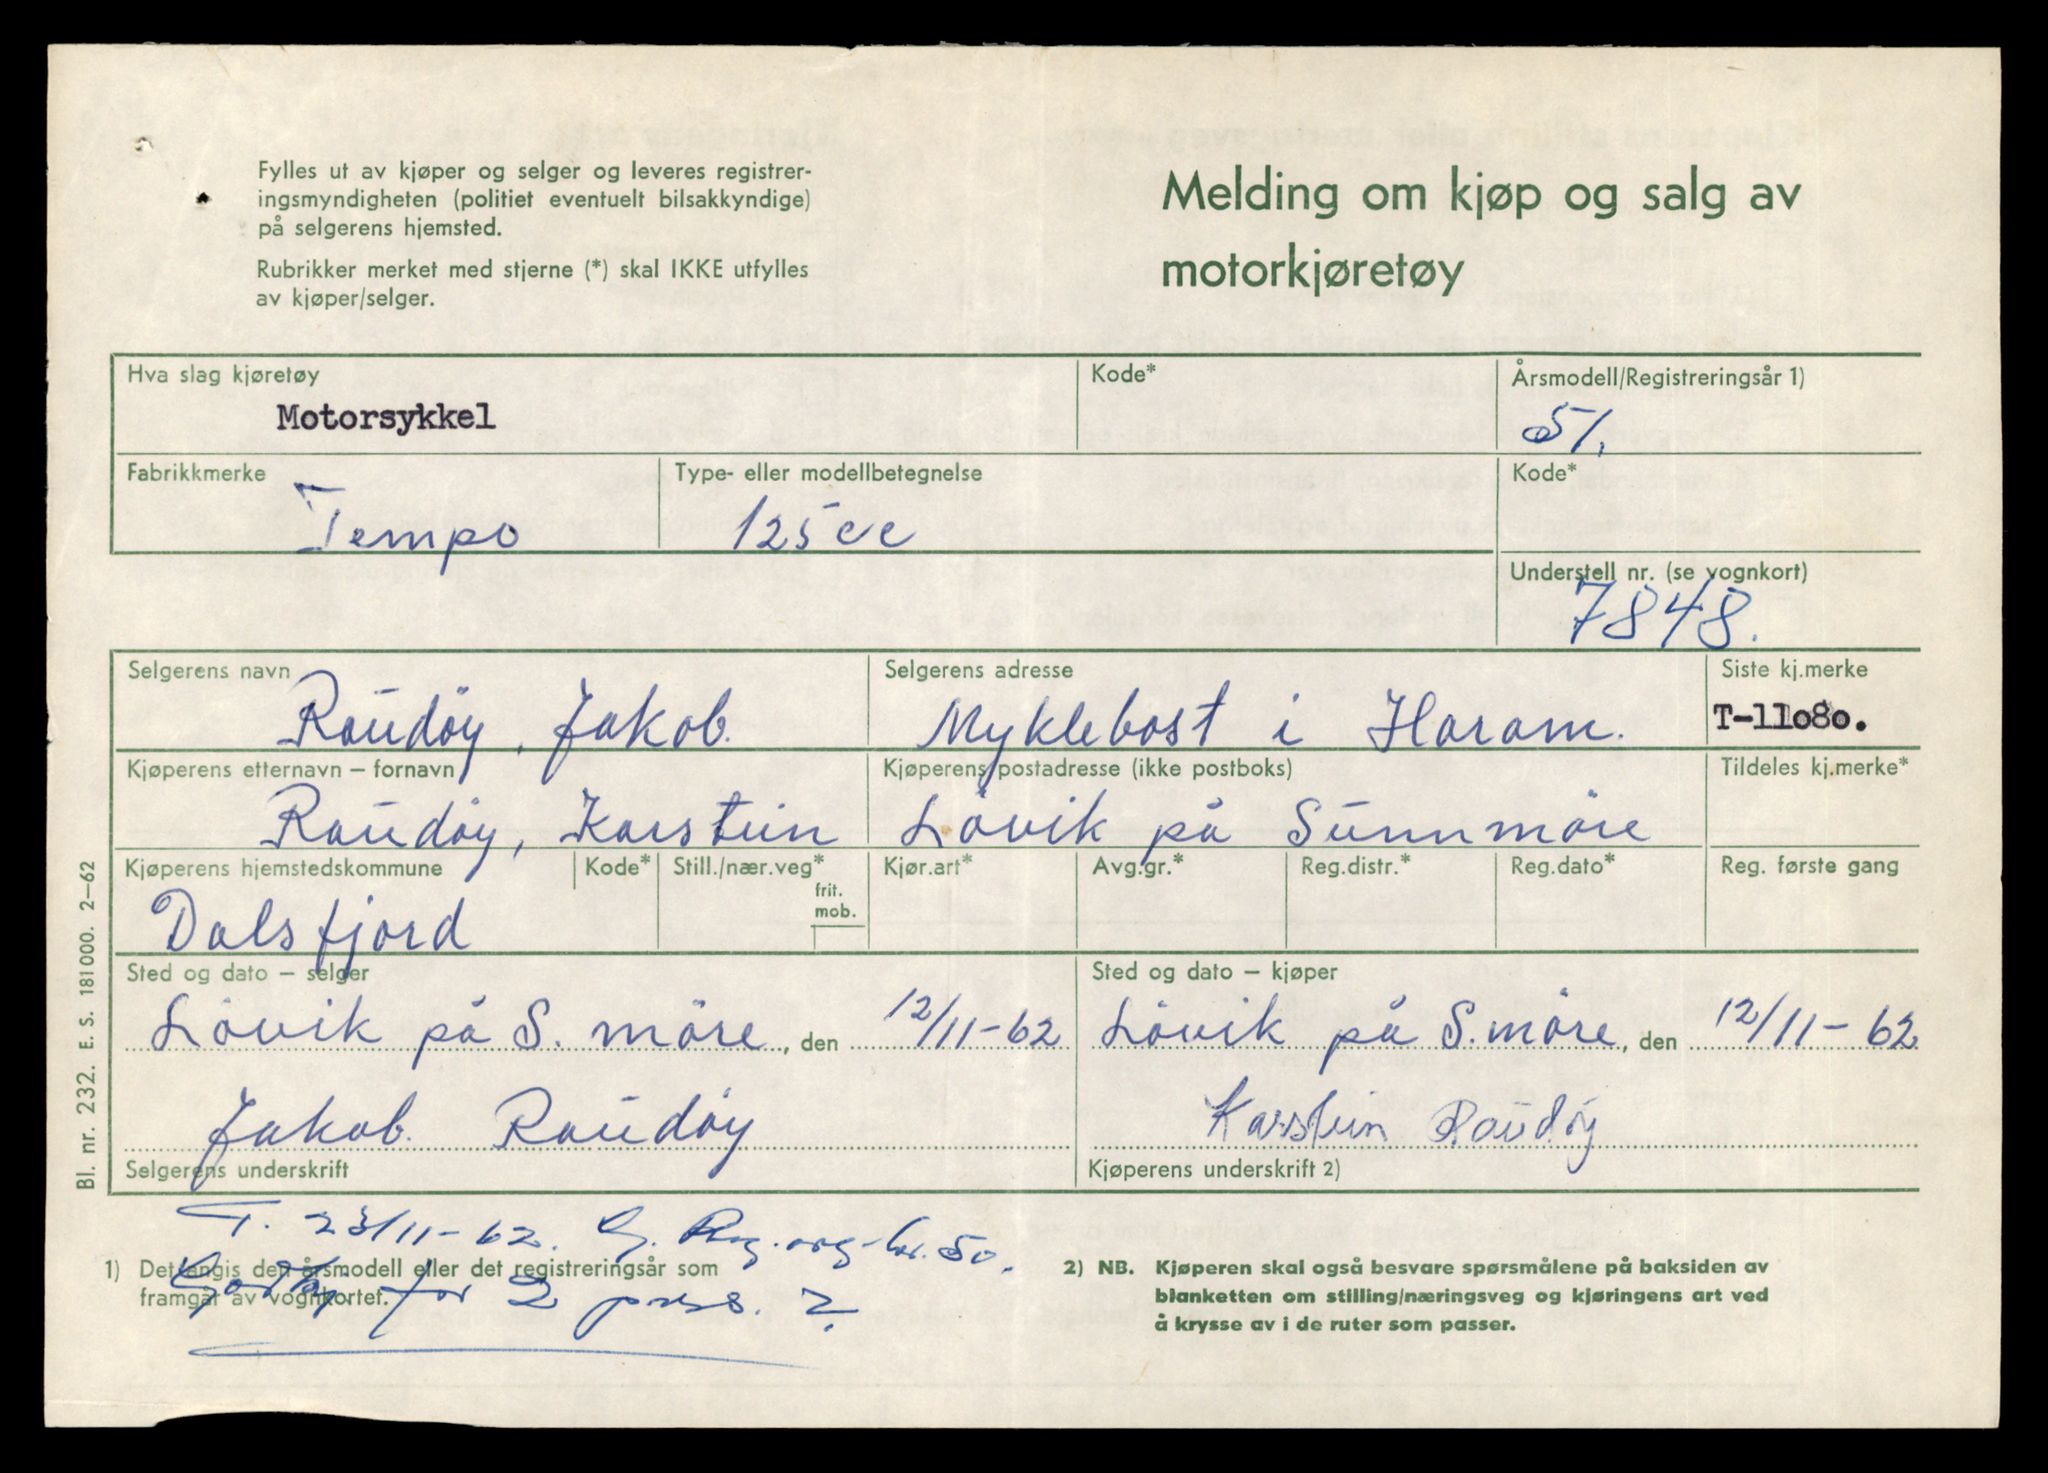 Fylles ut av kjøper og selger og leveres registrer-
ingsmyndigheten (politiet eventuelt bilsakkyndige)
på selgerens hjemsted.
Rubrikker merket med stjerne (*) skal IKKE utfylles
av kjøper/selger.
Melding om kjøp og salg av
motorkjøretøy
Hva slag kjøretøy
Motorsykkel
Kode*
Årsmodell/Registreringsår 1)
51.
Fabrikkmerke
Tempo
Type- eller modellbetegnelse
125 cc
Kode*
Understell nr. (se vognkort)
7848.
Selgerens navn
Raudöy, Jakob.
Selgerens adresse
Myklebost i Haram.
Siste kj.merke
T-11080.
Kjøperens etternavn – fornavn
Raudöy, Karstein
Kjøperens postadresse (ikke postboks)
Lövik på Sunnmöre
Tildeles kj.merke*
Kjøperens hjemstedskommune
Dalsfjord
Kode*
Still./nær.veg*
frit.
mob.
Kjør.art*
Avg.gr.*
Reg.distr.*
Reg.dato*
Reg. første gang
Sted og dato – selger
Lövik på S. möre, den 12/11-62
Sted og dato – kjøper
Lövik på S. möre, den 12/11-62
Jakob Raudöy
Selgerens underskrift
Karstein Raudöy
Kjøperens underskrift 2)
T. 23/11-62. Reg. avg. kr. 50.
for 2 pers.
1) Det angis den årsmodell eller det registreringsår som
framgår av vognkortet.
2) NB. Kjøperen skal også besvare spørsmålene på baksiden av
blanketten om stilling/næringsveg og kjøringens art ved
å krysse av i de ruter som passer.
Bl. nr. 232. E. S. 181000. 2–62